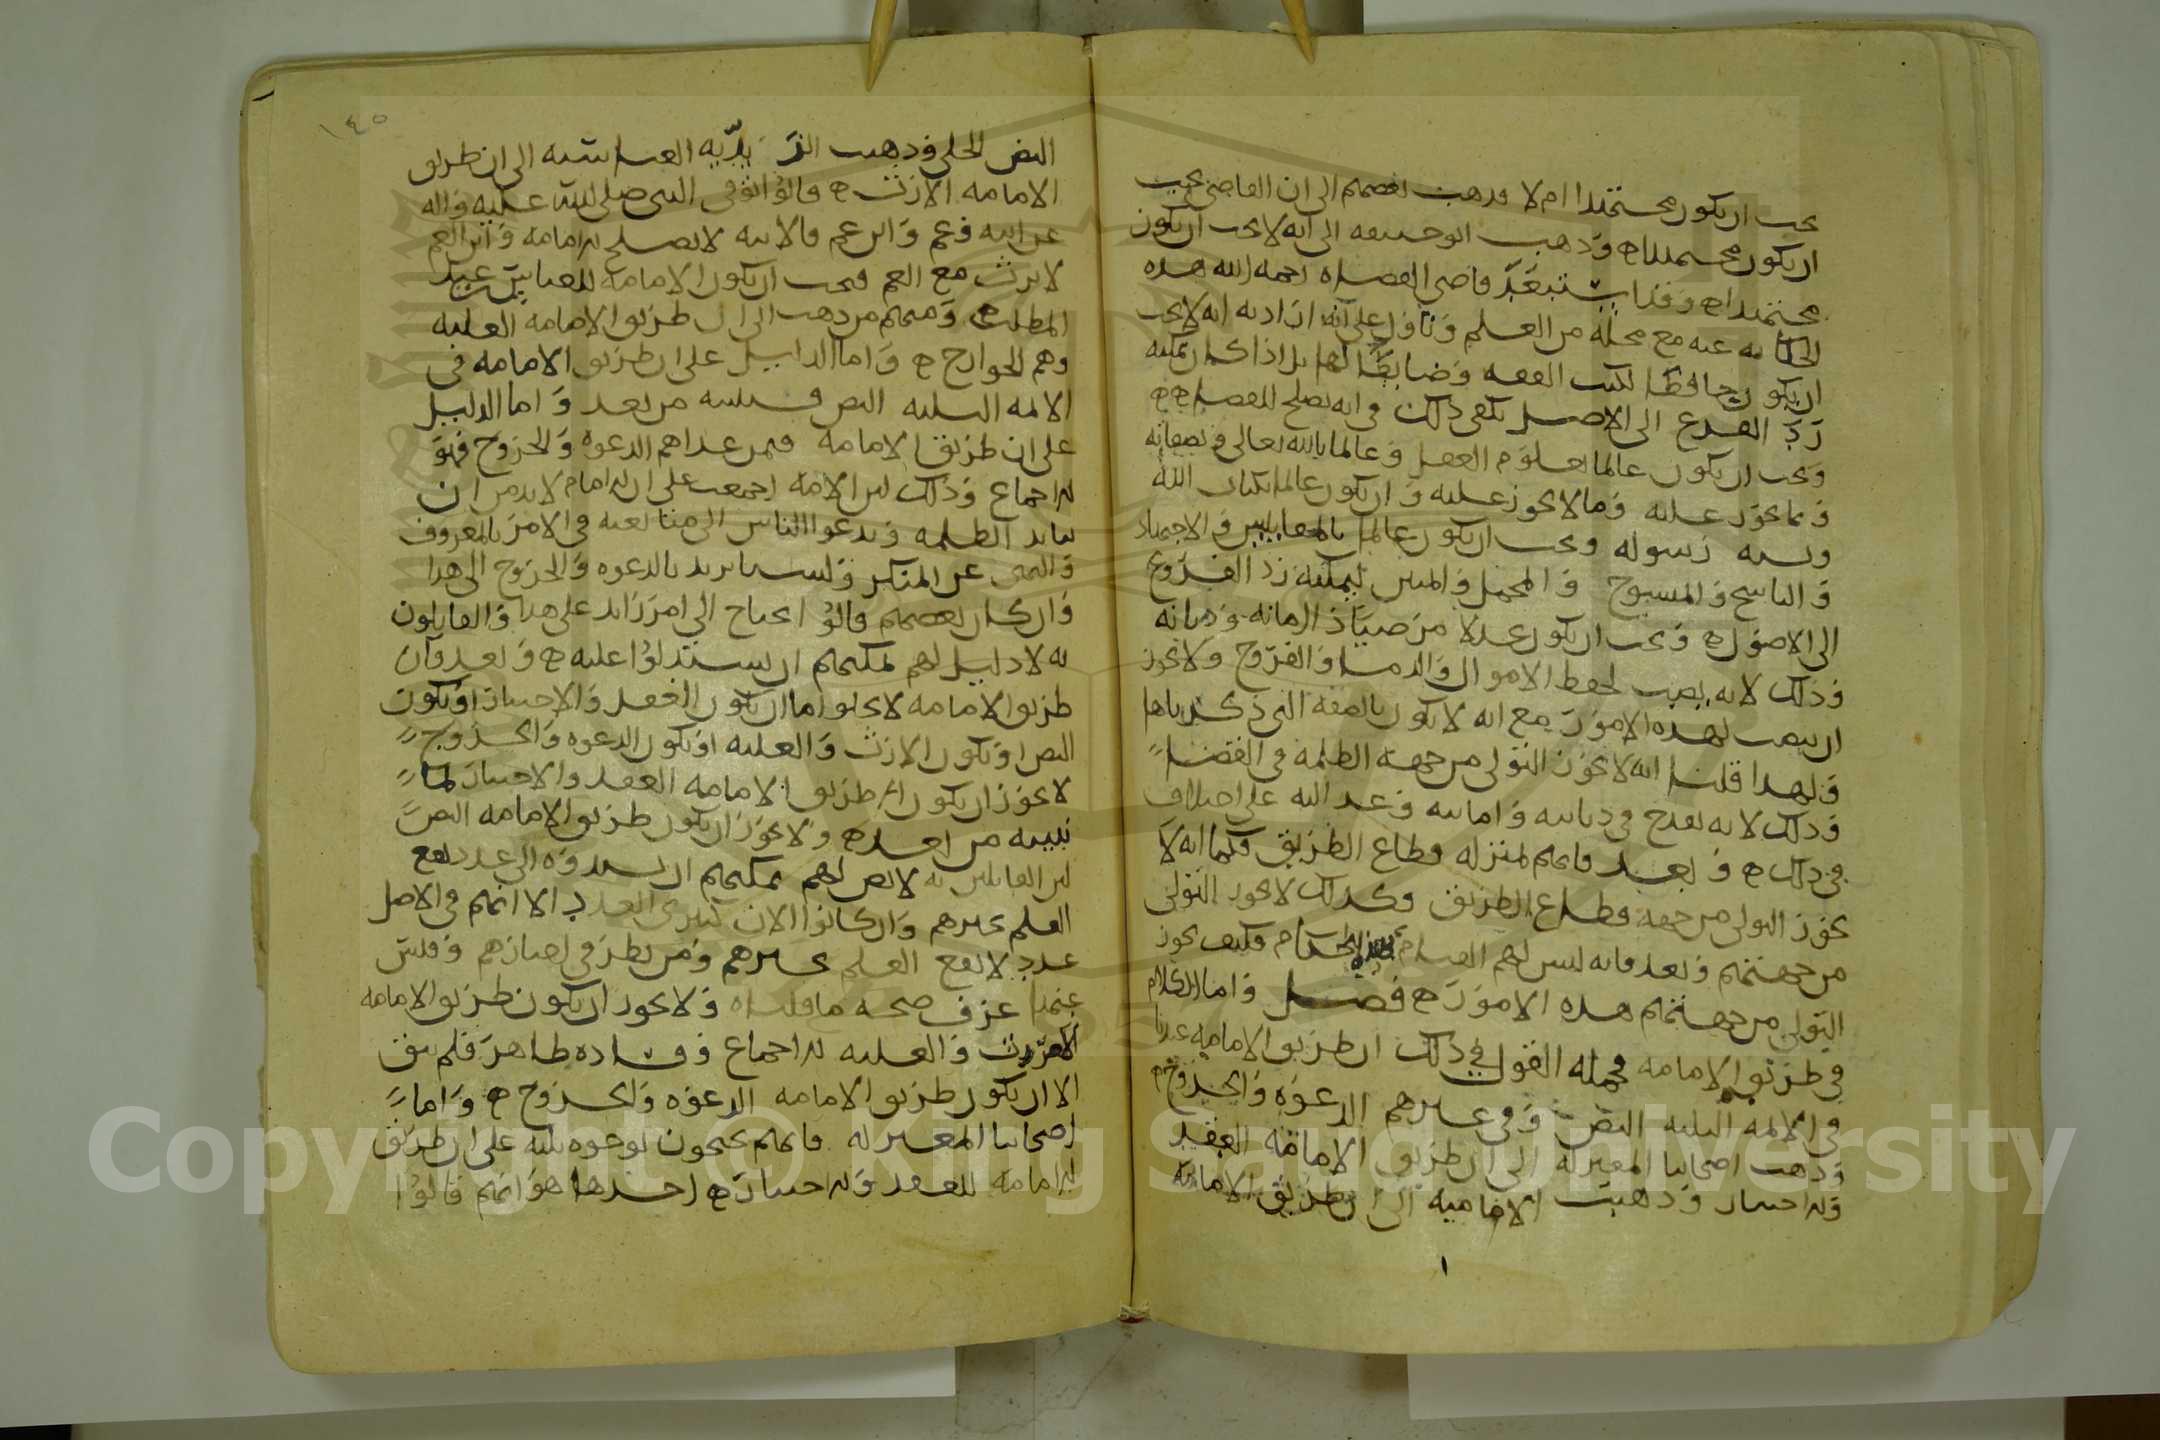 يجب ان يكون مجتهدا ام لا فذهب بعضهم الى ان القاضي يجب
ان يكون مجتهدا ه وذهب ابو حنيفه الى انه لا يجب ان يكون
مجتهدا ه وقد استبعد قاضي القضاه رحمه الله هذه
الحكايه عنه مع محله من العلم وتاول على انه اراد به انه لا يجب
ان يكون حافظا لكتب الفقه وضابطا لها بل اذا كان يمكنه
رد الفرع الى الاصل يكفي ذلك في انه يصلح للقضا ه ه
ويجب ان يكون عالما بعلوم العقل وعالما بالله تعالى وبصفاته
وما يجوز عليه وما لا يجوز عليه وان يكون عالما بكتاب الله
وسنه رسوله ويجب ان يكون عالما بالمقاييس والاجتهاد
والناسخ والمنسوخ والمجمل والمبين ليمكنه رد الفروع
الى الاصول ه ويجب ان يكون عدلا مرضيا ذا امانه وديانه
وذلك لانه نصب لحفظ الاموال والدما والفروج ولا يجوز
ان ينصب لهذه الامور مع انه لا يكون بالصفه التي ذكرناها
ولهذا قلنا انه لا يجوز التولي من جهة الظلمه في القضا
وذلك لانه يقدح في ديانته وامانته وعدالته على اختلاف
في ذلك ه وبعد فانهم لمنزله قطاع الطريق فكما انه لا
يجوز التولي من جهة قطاع الطريق فكذلك لا يجوز التولي
من جهتهم وبعد فانه ليس لهم القيام بهذه الاحكام فكيف يجوز
التولي من جهتهم هذه الامور ه فصل واما الكلام
في طريق الامامه فجمله القول في ذلك ان طريق الامامه عندنا
في الائمه الثلثه النص وفي غيرهم الدعوه والخروج
وذهب اصحابنا المعتزله الى ان طريق الامامه العقد
والاختيار وذهبت الاماميه الى ان طريق الامامه
١
١٤٥
النص الجلي وذهبت الزيديه العباسيه الى ان طريق
الامامه الارث ه قالوا توفي النبي صلى الله عليه واله
عن ابنه وعم وابن عم فالابنه لا تصلح للامامه وابن العم
لا يرث مع العم فيجب ان يكون الامامه للعباس عبد
المطلب ه ومنهم من ذهب الى ان طريق الامامه الغلبه
وهم الخوارج ه واما الدليل على ان طريق الامامه في
الائمه الثلثه النص فسنبينه من بعد واما الدليل
على ان طريق الامامه فيمن عداهم الدعوه والخروج فهو
الاجماع وذلك لان الامه اجمعت على ان الامام لا بد من ان
يباين الظلمه ويدعوا الناس الى متابعته في الامر بالمعروف
والنهي عن المنكر ولسنا نريد بالدعوه والخروج الا هذا
وان كان بعضهم قالوا احتاج الى امر زائد على هذا والقايلون
به لا دليل لهم يمكنهم ان يستدلوا عليه ه وبعد فان
طريق الامامه لا يخلوا اما ان يكون العقد والاختيار او يكون
النص او يكون الارث والغلبه او يكون الدعوه والخروج
لا يجوز ان يكون ان طريق الامامه العقد والاختيار لما
نبينه من بعد ه ولا يجوز ان يكون طريق الامامه النص
لان القايلين به لا نص لهم يمكنهم ان يسندوه الى عدد يقع
العلم بخبرهم وان كانوا الان كثيري العدد الا انهم في الاصل
عدد لا يقع العلم بخبرهم ومن نظر في اخبارهم وفتش
عنها عرف صحه ما قلناه ولا يجوز ان يكون طريق الامامه
الارث والغلبه للاجماع وفساده ظاهر فلم يبق
الا ان يكون طريق الامامه الدعوه والخروج ه واما
اصحابنا المعتزله فانهم يحتجون بوجوه ثلثه على ان طريق
الامامه العقد والاختيار ه احدها هو انهم قالوا
Copyright © King Saud University